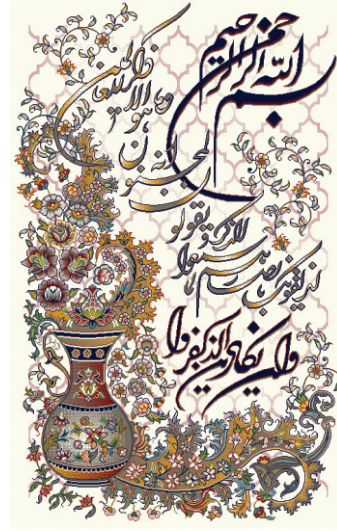 بسم الله الرحمن الرحیم
وان یکاد الذین کفروا
لیزلقونک بابصارهم لما سمعوا
الذکر و یقولون
انه لمجنون
وما هو الا ذکر للعالمین